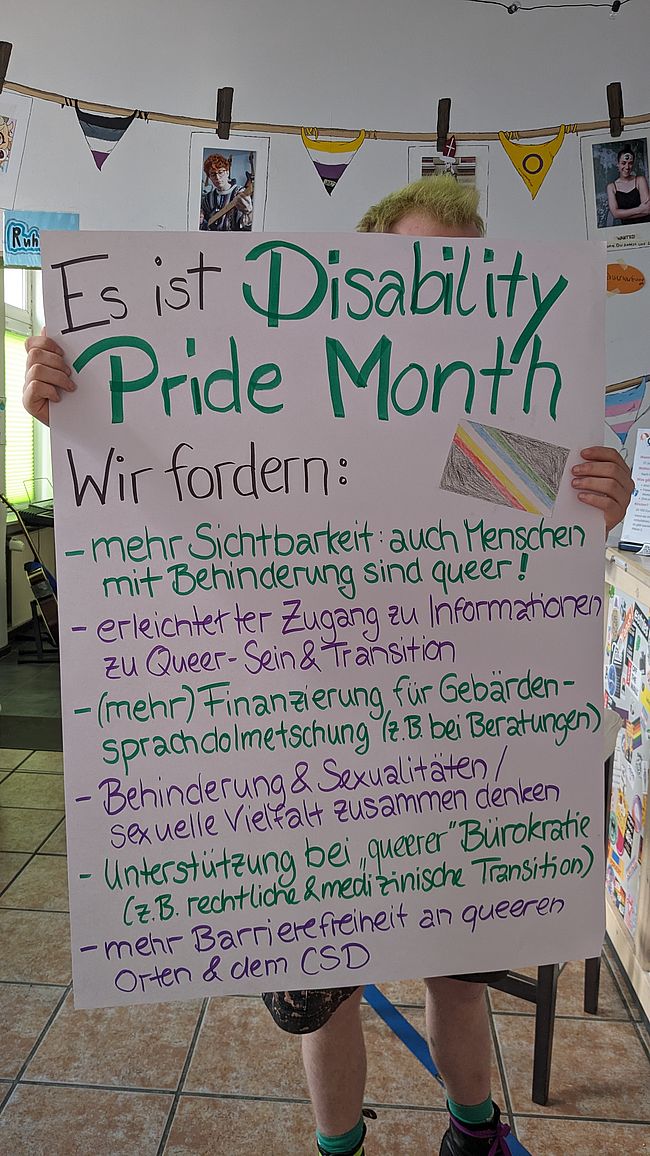 Ruh
Es ist Disability
Pride Month
Wir fordern:
- mehr Sichtbarkeit: auch Menschen
mit Behinderung sind queer!
- erleichterter Zugang zu Informationen
zu Queer-Sein & Transition
- (mehr) Finanzierung für Gebärden-
sprachdolmetschung (z.B. bei Beratungen)
- Behinderung & Sexualitäten /
sexuelle Vielfalt zusammen denken
- Unterstützung bei „queerer" Bürokratie
(z.B. rechtliche & medizinische Transition)
- mehr Barrierefreiheit an queeren
Orten & dem CSD